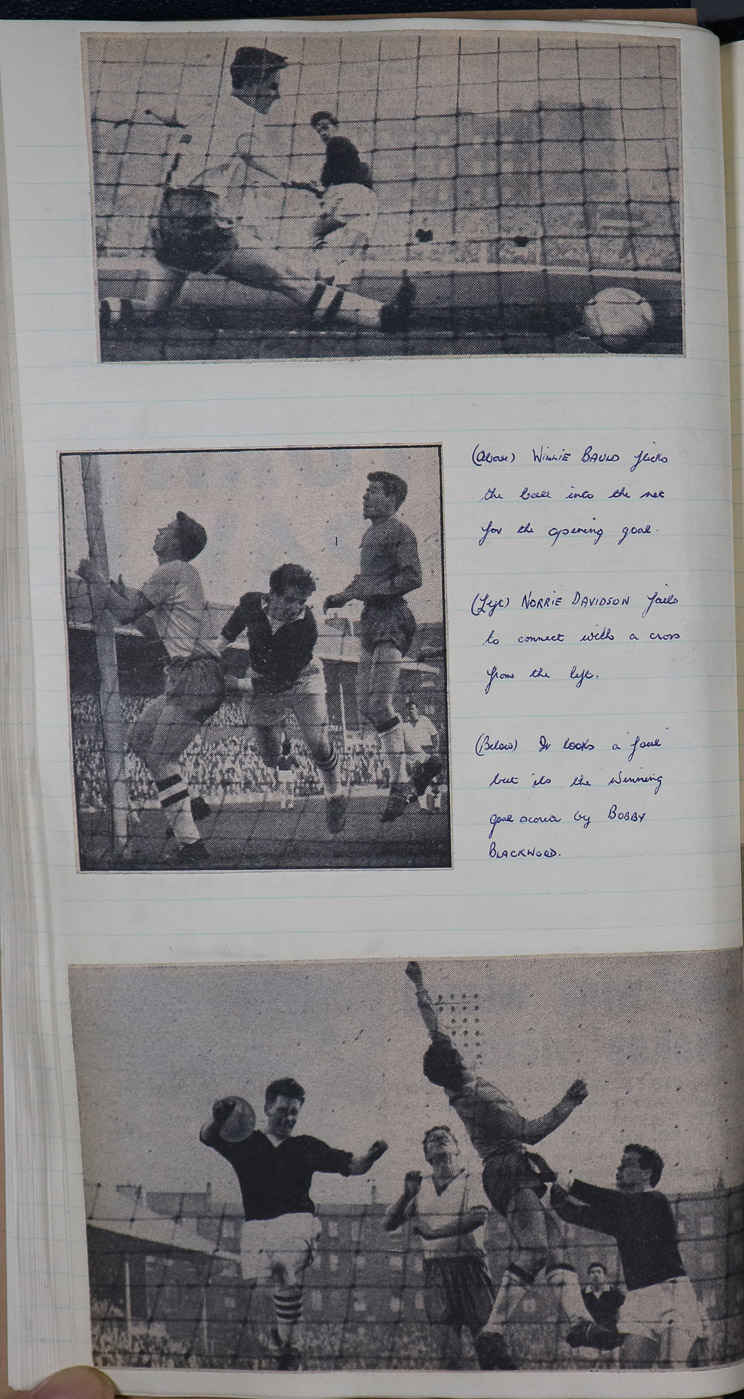 (Above) WILLIE BAULD flicks
the ball into the net
for the opening goal.
(Left) NORRIE DAVIDSON fails
to connect with a cross
from the left.
(Below) It looks a foul
but its the winning
goal scored by BOBBY
BLACKWOOD.